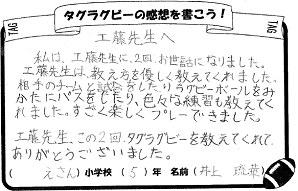 タグラグビーの感想を書こう!
TAG
TAG
工藤先生へ
私は、工藤先生に、2回、お世話になりました。
工藤先生は、教え方を優しく教えてくれました。
相手のチームと試合をしたりラグビーボールをみ
かたにパスをしたり、色々な練習も教えてく
れました。すごく楽しくプレーできました。
工藤先生、この2回、タグラグビーを教えてくれて、
ありがとうございました。
(えさん)小学校 (5)年 名前(井上 琉菜)